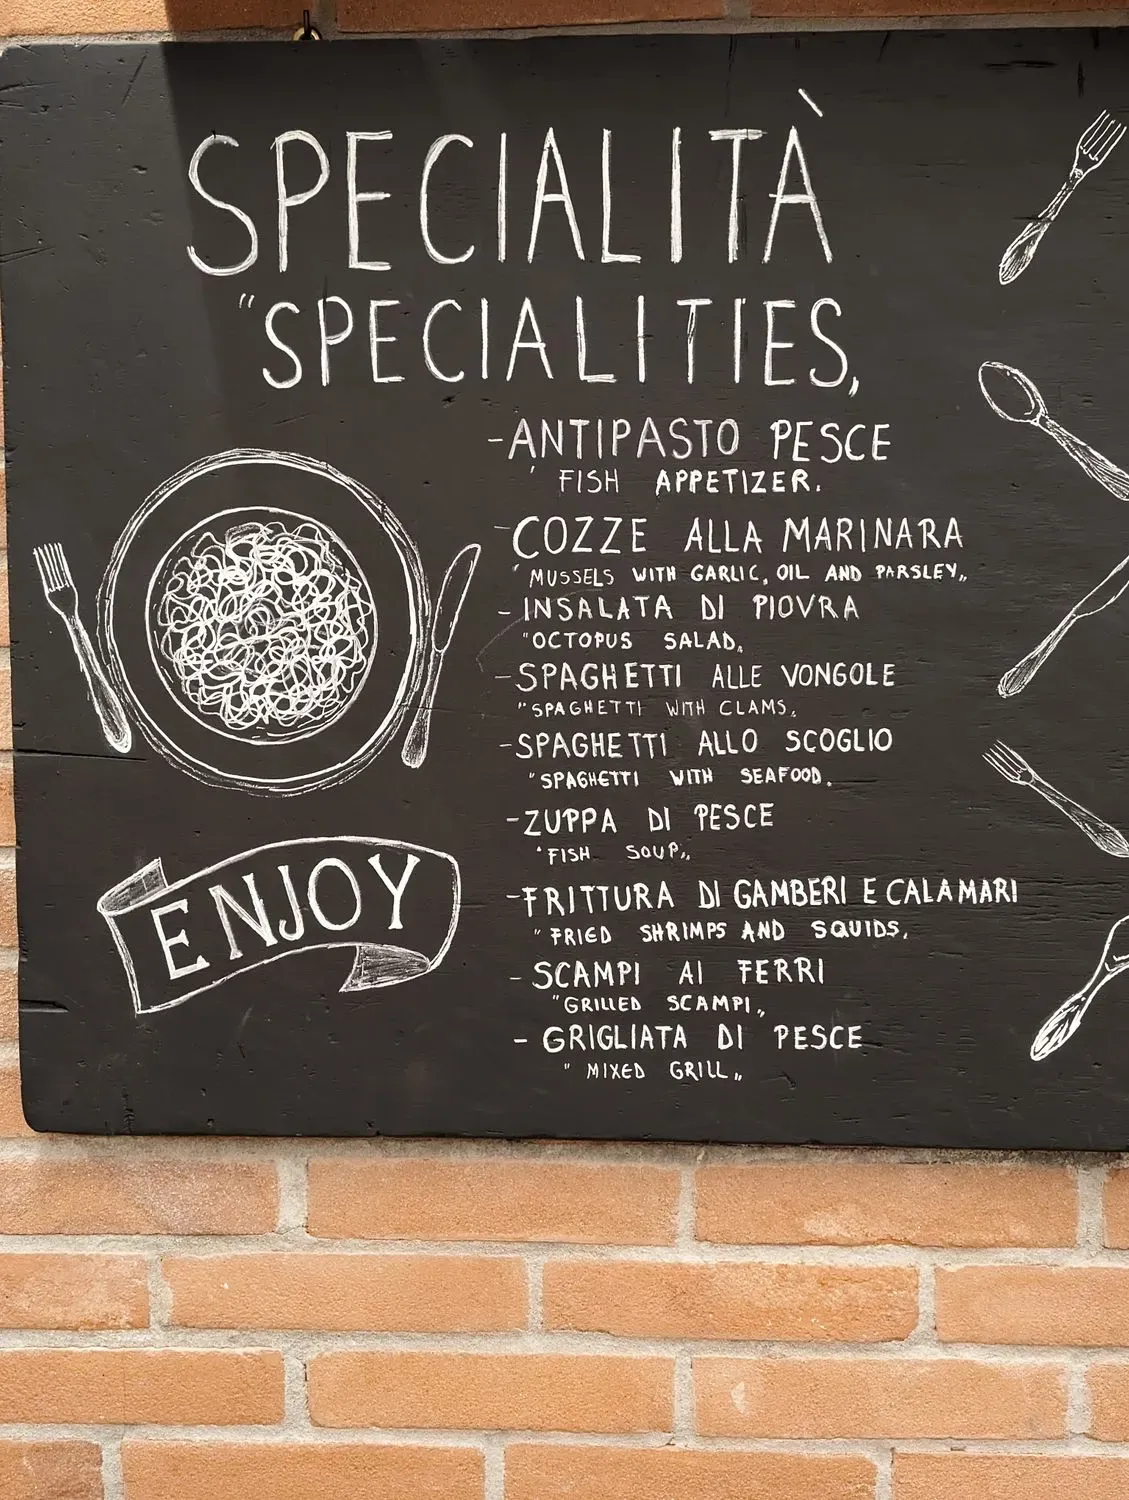 SPECIALITÀ
"SPECIALITIES,
-ANTIPASTO PESCE
' FISH APPETIZER.
-COZZE ALLA MARINARA
' MUSSELS WITH GARLIC, OIL AND PARSLEY,,
-INSALATA DI PIOVRA
"OCTOPUS SALAD,
-SPAGHETTI ALLE VONGOLE
"SPAGHETTI WITH CLAMS,
-SPAGHETTI ALLO SCOGLIO
"SPAGHETTI WITH SEAFOOD.
-ZUPPA DI PESCE
'FISH SOUP,,
-FRITTURA DI GAMBERI E CALAMARI
"FRIED SHRIMPS AND SQUIDS,
-SCAMPI AI FERRI
"GRILLED SCAMPI,,
- GRIGLIATA DI PESCE
" MIXED GRILL,,
ENJOY